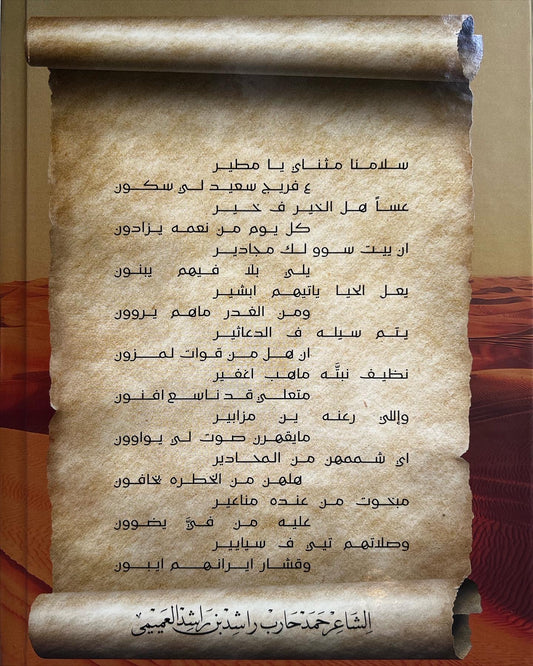 سلامنا مثناي يا مطير
ع فريج سعيد لي سكون
عساً هل الخير ف خير
كل يوم من نعمه يزادون
ان بيت سوو لك مجادير
يلي بلا فيهم يبنون
يعل الحيا ياتيهم ابشير
ومن الغدر ماهم يروون
يتم سيله ف الدعاثير
ان هل من قوات لمزون
نظيف نبتَّه ماهب اغفير
متعلي قد تاسع افنون
واللي رعنه ين مزابير
مايقهرن صوت لي يواوون
اي شممهن من المحادير
هلهن من الخطره يخافون
مبخوت من عنده مناعير
عليه من فيَّ يضوون
وصلاتهم تيي ف سيايير
وقشار ايرانهم ايبون
الشاعر حمد حارب راشد بن راشد العميمي